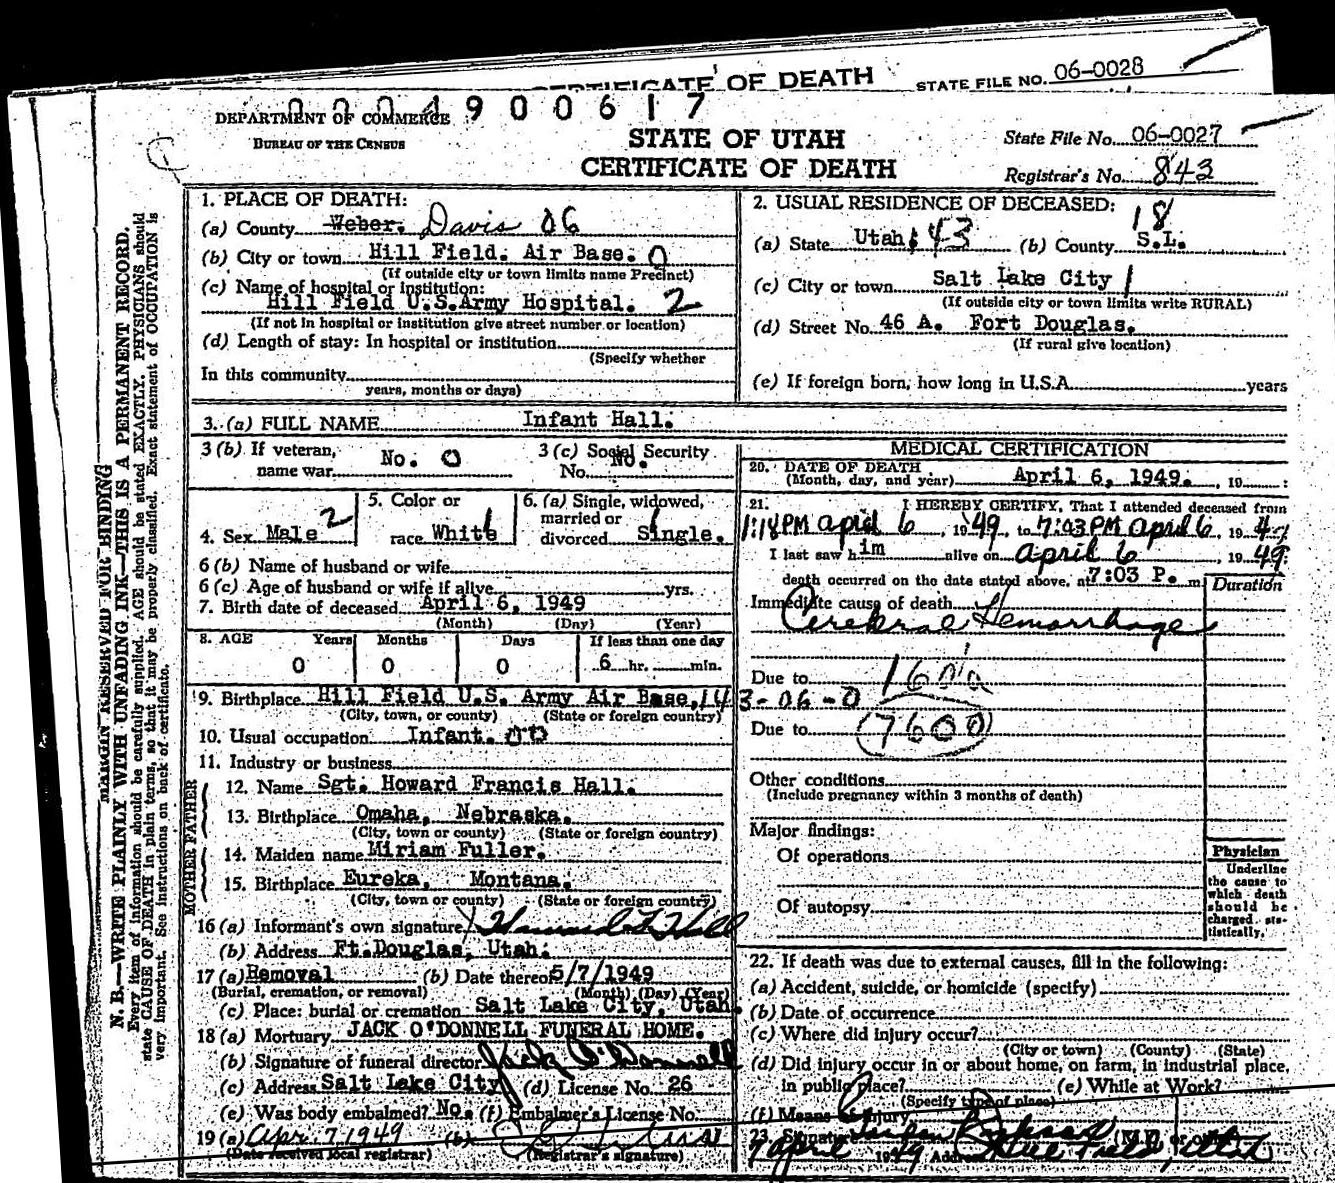 CERTIFICATE OF DEATH STATE FILE NO. 06-0028
0004900617
DEPARTMENT OF COMMERCE
BUREAU OF THE CENSUS
STATE OF UTAH
CERTIFICATE OF DEATH
State File No. 06-0027
Registrar's No. 843
MARGIN RESERVED FOR BINDING
N. B.—WRITE PLAINLY WITH UNFADING INK—THIS IS A PERMANENT RECORD.
Every item of information should be carefully supplied. AGE should be stated EXACTLY. PHYSICIANS should
state CAUSE OF DEATH in plain terms, so that it may be properly classified. Exact statement of OCCUPATION is
very important. See instructions on back of certificate.
1. PLACE OF DEATH:
(a) County Weber. Davis 06
(b) City or town Hill Field. Air Base. 0
(If outside city or town limits name Precinct)
(c) Name of hospital or institution:
Hill Field U.S.Army Hospital. 2
(If not in hospital or institution give street number or location)
(d) Length of stay: In hospital or institution
(Specify whether
In this community
years, months or days)
2. USUAL RESIDENCE OF DECEASED:
18
(a) State Utah 43 (b) County S.L.
(c) City or town Salt Lake City 1
(If outside city or town limits write RURAL)
(d) Street No. 46 A. Fort Douglas.
(If rural give location)
(e) If foreign born, how long in U.S.A. years
3. (a) FULL NAME Infant Hall.
3 (b) If veteran, name war No. 0
3 (c) Social Security No. No.
4. Sex Male 2
5. Color or race White 1
6. (a) Single, widowed, married or divorced Single. 1
6 (b) Name of husband or wife
6 (c) Age of husband or wife if alive yrs.
7. Birth date of deceased April 6, 1949
(Month) (Day) (Year)
8. AGE Years Months Days If less than one day
0 0 0 6 hr. min.
9. Birthplace Hill Field U.S. Army Air Base, 143-06-0
(City, town, or county) (State or foreign country)
10. Usual occupation Infant. 00
11. Industry or business
FATHER
12. Name Sgt. Howard Francis Hall.
13. Birthplace Omaha, Nebraska.
(City, town or county) (State or foreign country)
MOTHER
14. Maiden name Miriam Fuller.
15. Birthplace Eureka, Montana.
(City, town or county) (State or foreign country)
16 (a) Informant's own signature X Howard F Hall
(b) Address Ft.Douglas, Utah.
17 (a) Removal (b) Date thereof 5/7/1949
(Burial, cremation, or removal) (Month) (Day) (Year)
(c) Place: burial or cremation Salt Lake City, Utah.
18 (a) Mortuary JACK O'DONNELL FUNERAL HOME.
(b) Signature of funeral director Jack O'Donnell
(c) Address Salt Lake City (d) License No. 26
(e) Was body embalmed? No. (f) Embalmer's License No.
19 (a) Apr. 7 1949 (b)
(Date received local registrar) (Registrar's signature)
MEDICAL CERTIFICATION
20. DATE OF DEATH
(Month, day, and year) April 6, 1949. , 19 :
21. I HEREBY CERTIFY, That I attended deceased from
1:18 PM april 6, 1949, to 7:03 PM April 6, 1949
I last saw him alive on april 6 1949.
death occurred on the date stated above, at 7:03 P. m. Duration
Immediate cause of death
Cerebral Hemorrhage
Due to 160a
Due to (7600)
Other conditions
(Include pregnancy within 3 months of death)
Major findings:
Of operations
Of autopsy
Physician
Underline
the cause to
which death
should be
charged sta-
tistically.
22. If death was due to external causes, fill in the following:
(a) Accident, suicide, or homicide (specify)
(b) Date of occurrence
(c) Where did injury occur?
(City or town) (County) (State)
(d) Did injury occur in or about home, on farm, in industrial place,
in public place? (e) While at Work?
(Specify type of place)
(f) Means of Injury
23. Signature (M.D. or other)
7 april 1949 Address Hill Field, Utah